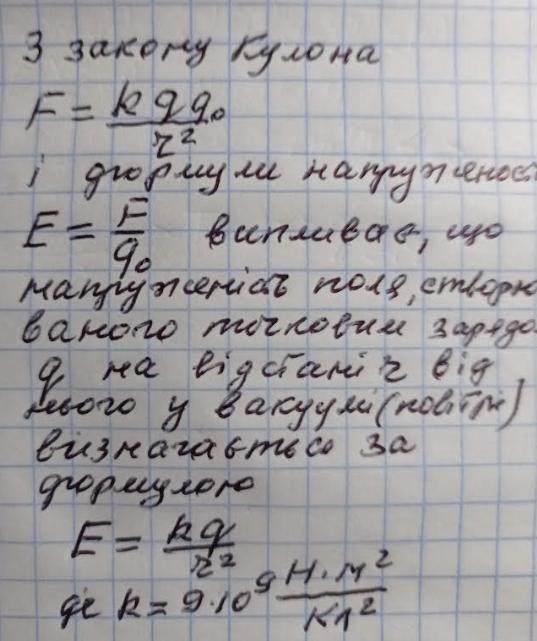 З закону Кулона
F = k q q₀ / r²
і формули напруженост
E = F / q₀ випливає, що
напруженість поля, створю
ваного точковим зарядо
q на відстані r від
нього у вакуумі (повітрі)
визначається за
формулою
E = kq / r²
де k = 9·10⁹ Н·м² / Кл²